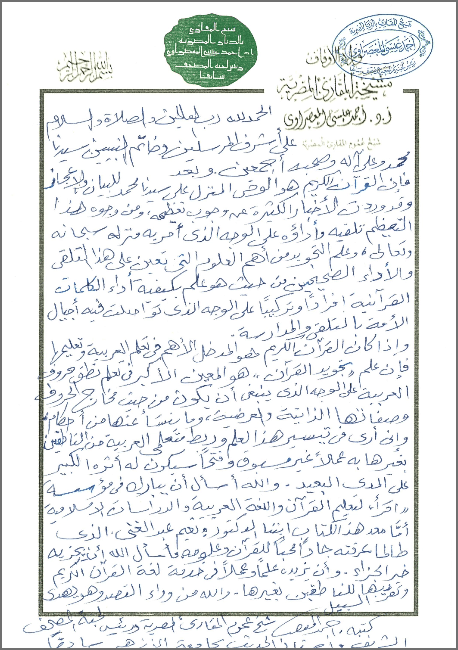 شيخ المقارئ
بالديار المصرية
أ.د/ أحمد عيسى المعصراوي
ورئيس لجنة المصحف
سابقا
بسم الله الرحمن الرحيم
وزارة الأوقاف
مشيخة المقارئ المصرية
أ.د. أحمد عيسى المعصراوي
شيخ عموم المقارئ المصرية
الحمد لله رب العالمين والصلاة والسلام
على أشرف المرسلين وخاتم النبيين سيدنا
محمد وعلى آله وصحبه أجمعين. وبعد
فإن القرآن الكريم هو الوحي المنزل على سيدنا محمد للبيان والإعجاز
وقد وردت الأخبار الكثيرة عن وجوب تعظيمه، ومن وجوه هذا
التعظيم تلقيه وأداؤه على الوجه الذي أمر به منزله سبحانه
وتعالى، وعلم التجويد من أهم العلوم التي تعين على هذا التلقي
والأداء الصحيحين من حيث هو علم بكيفية أداء الكلمات
القرآنية إفراداً وتركيباً على الوجه الذي تواصلت فيه أجيال
الأمة بالتلقي والمدارسة.
وإذا كان القرآن الكريم هو المدخل الأهم في تعلم العربية وتعليمها
فإن علم "تجويد القرآن" هو المعين الأكبر في تعلم نطق حروف
العربية على الوجه الذي ينبغي أن يكون من حيث مخارج الحروف
وصفاتها الذاتية والعرضية، وما ينشأ عنها من أحكام
وإني أرى في تيسير هذا العلم وربط متعلمي العربية من الناطقين
بغيرها به عملاً غير مسبوق وفتحاً سيكون له أثره الكبير
على المدى البعيد. والله أسأل أن يبارك في مؤسسة
"اقرأ" لتعليم القرآن واللغة العربية والدراسات الإسلامية
أما معد هذا الكتاب ابننا الدكتور عبد الغني، الذي
طالما عرفته جاداً محباً للقرآن وعلومه فأسأل الله أن يجزيه
خير الجزاء. وأن يزيده علماً وعملاً في خدمة لغة القرآن الكريم
للناطقين بغيرها. والله من وراء القصد وهو يهدي
السبيل
كتبه/ شيخ عموم المقارئ المصرية ورئيس لجنة المصحف